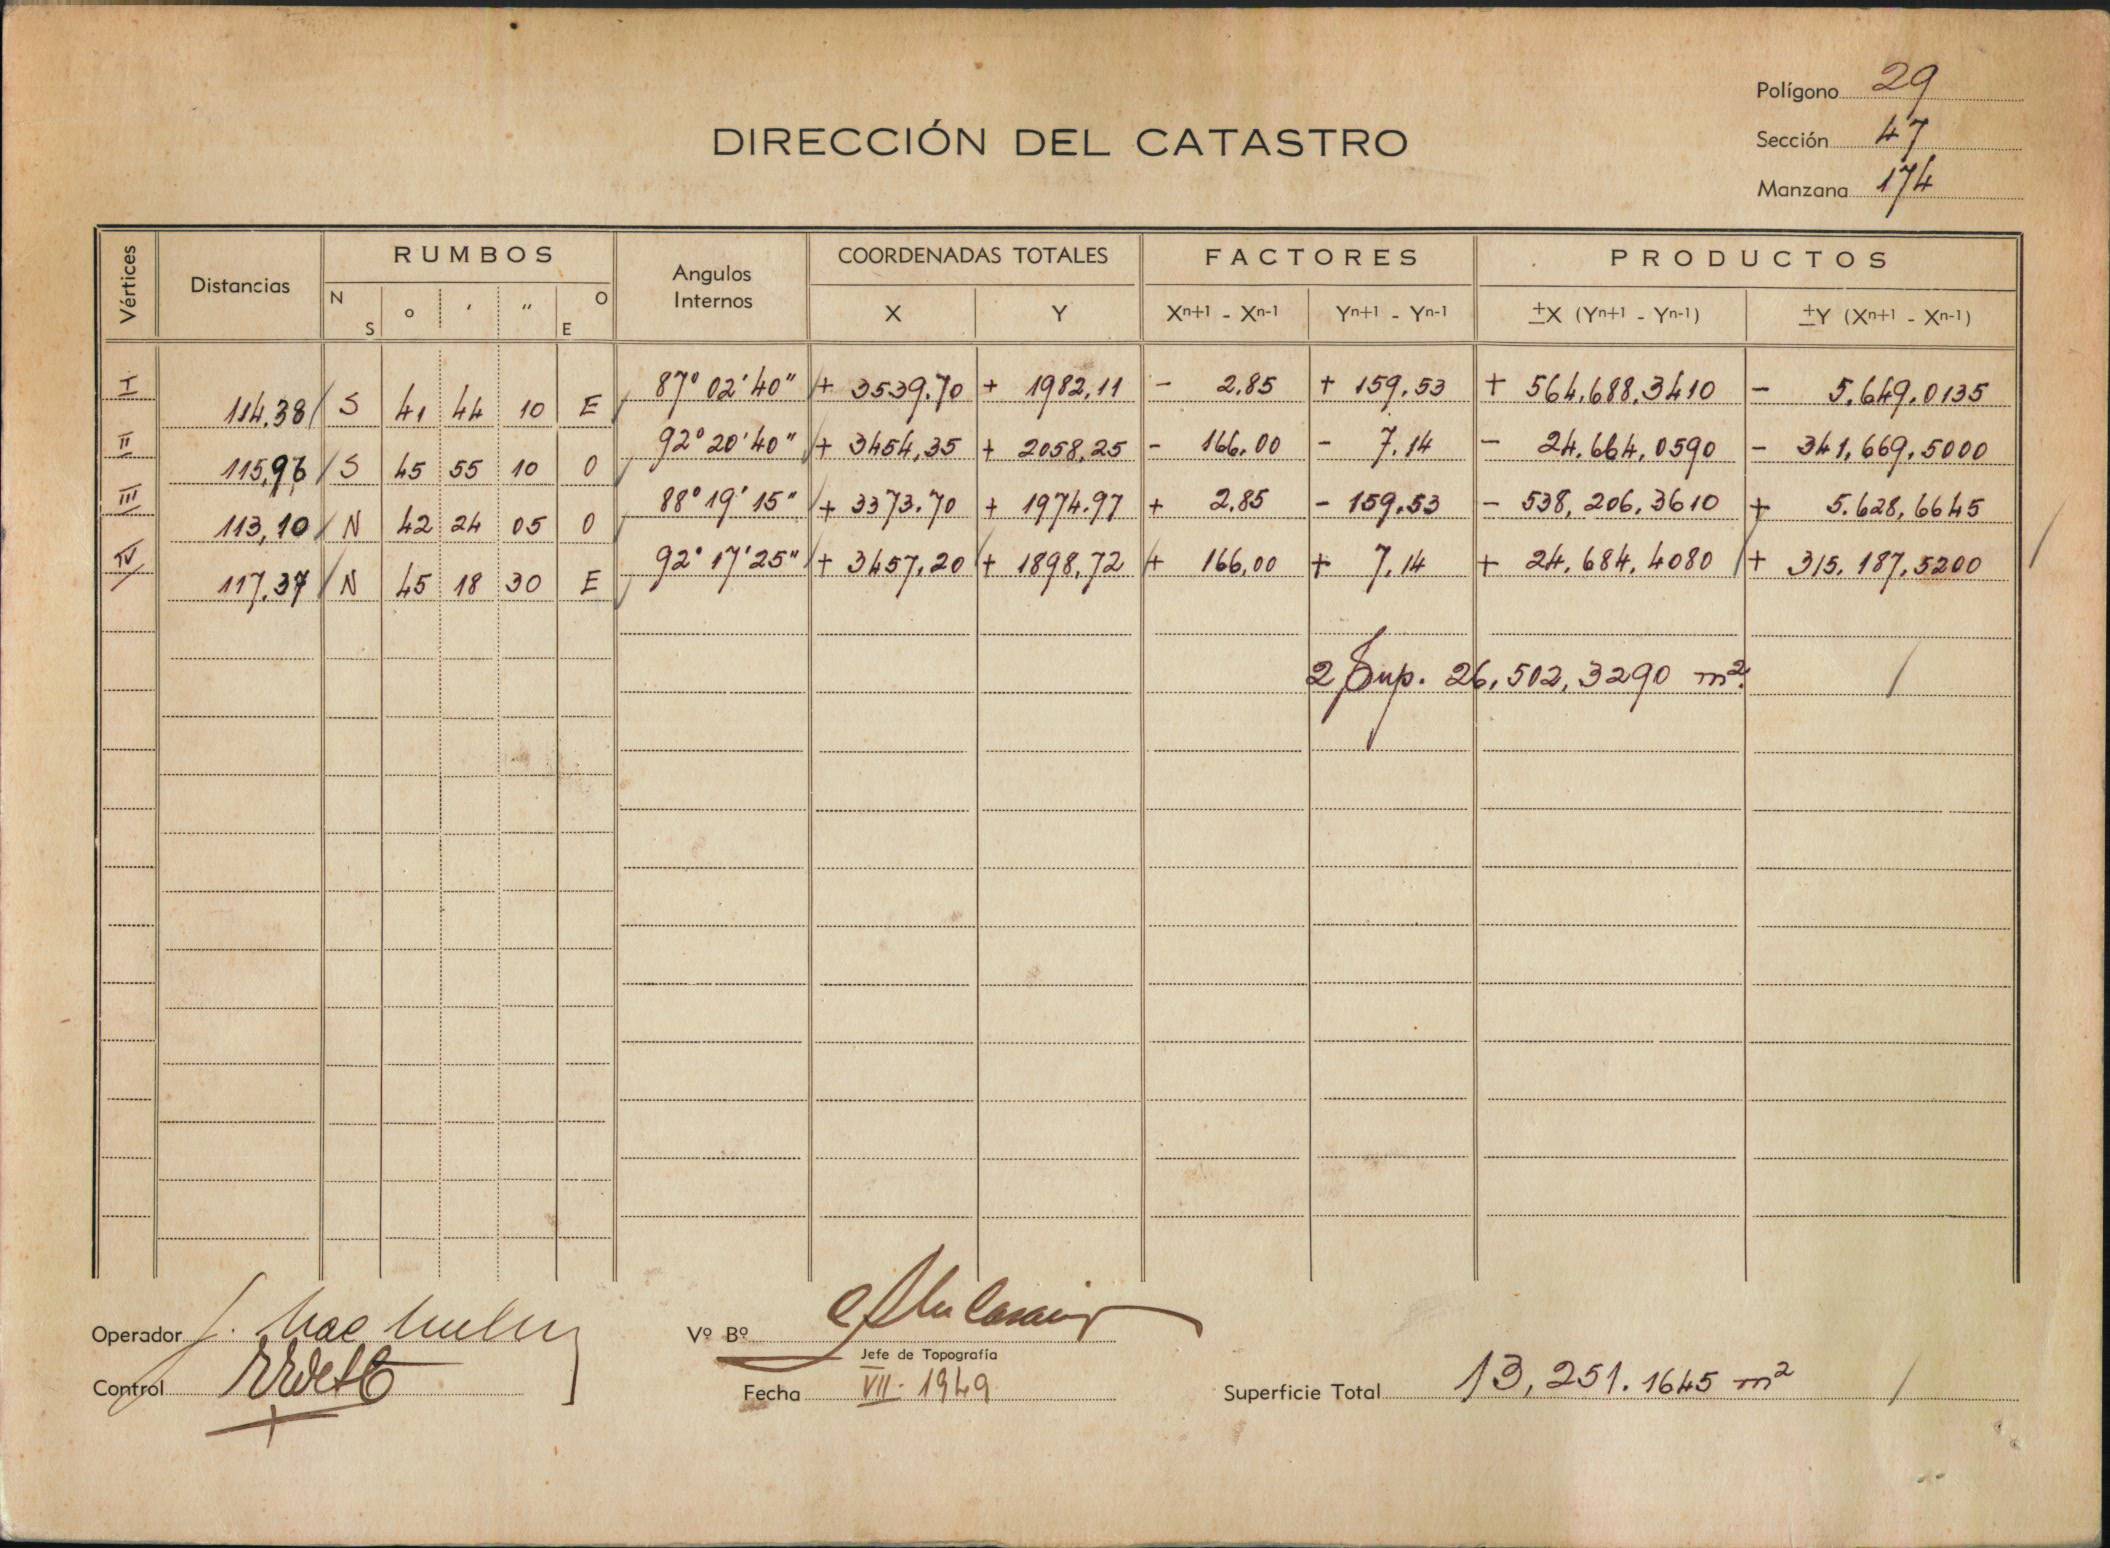 Polígono 29
DIRECCIÓN DEL CATASTRO
Sección 47
Manzana 174
Vértices Distancias RUMBOS Angulos Internos COORDENADAS TOTALES FACTORES PRODUCTOS
N S ° ' " O E X Y Xn+1 - Xn-1 Yn+1 - Yn-1 ±X (Yn+1 - Yn-1) ±Y (Xn+1 - Xn-1)
I 87° 02' 40" + 3539.70 + 1982,11 - 2.85 + 159.53 + 564.688.3410 - 5.649.0135
114.38 S 41 44 10 E
II 92° 20' 40" + 3454,35 + 2058,25 - 166.00 - 7.14 - 24.664,0590 - 341,669.5000
115,96 S 45 55 10 O
III 88° 19' 15" + 3373.70 + 1974.97 + 2.85 - 159.53 - 538,206.3610 + 5.628,6645
113,10 N 42 24 05 O
IV 92° 17' 25" + 3457,20 + 1898,72 + 166,00 + 7.14 + 24.684.4080 + 315.187,5200
117.37 N 45 18 30 E
2 Sup. 26,502,3290 m2.
Operador
Vº Bº
Jefe de Topografía
Control
Fecha VII - 1949
Superficie Total 13,251.1645 m2